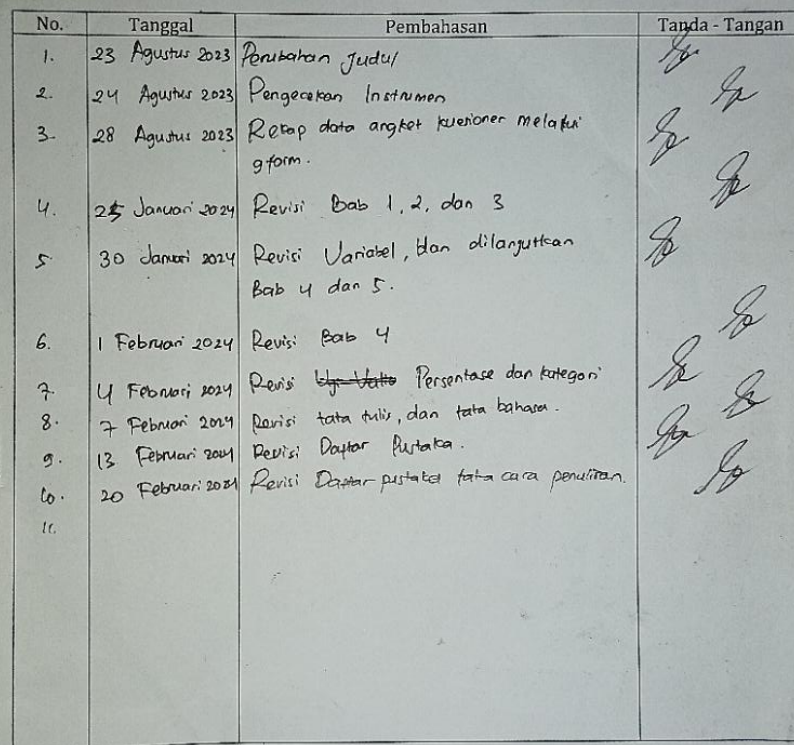 No. Tanggal Pembahasan Tanda - Tangan
1. 23 Agustus 2023 Perubahan Judul
2. 24 Agustus 2023 Pengecekan Instrumen
3. 28 Agustus 2023 Rekap data angket kuesioner melalui
gform.
4. 25 Januari 2024 Revisi Bab 1, 2, dan 3
5. 30 Januari 2024 Revisi Variabel, dan dilanjutkan
Bab 4 dan 5.
6. 1 Februari 2024 Revisi Bab 4
7. 4 Februari 2024 Revisi Persentase dan kategori
8. 7 Februari 2024 Revisi tata tulis, dan tata bahasa.
9. 13 Februari 2024 Revisi Daftar Pustaka.
10. 20 Februari 2024 Revisi Daftar pustaka tata cara penulisan.
11.